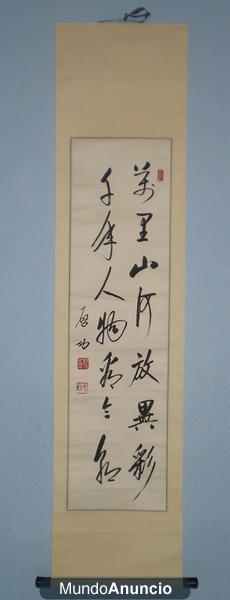 萬里山河放異彩
千年人物看今朝
启功
MundoAnuncio